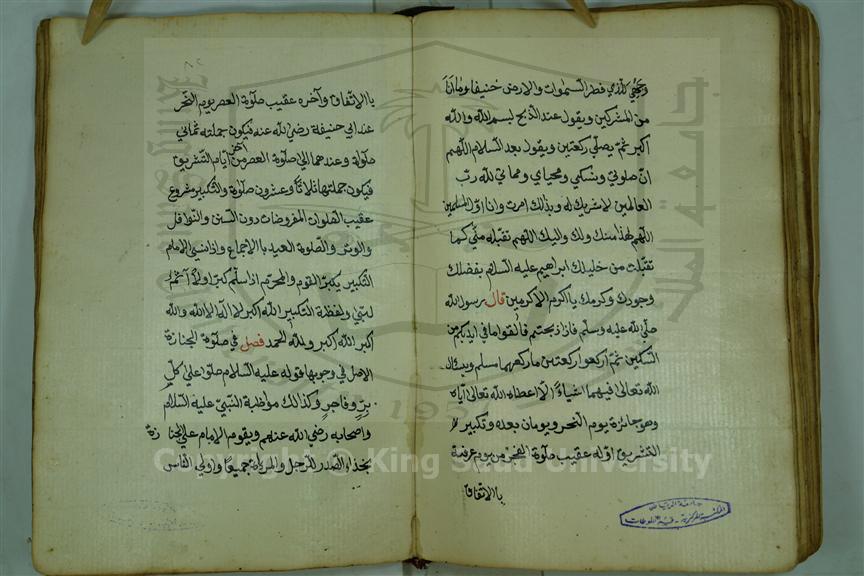 وجهي للذي فطر السموات والارض حنيفا وما انا
من المشركين ويقول عند الذبح بسم الله والله
اكبر ثم يصلي ركعتين ويقول بعد السلام اللهم
ان صلوتي ونسكي ومحياي ومماتي لله رب
العالمين لا شريك له وبذلك امرت وانا اول المسلمين
اللهم هذا منك ولك واليك اللهم تقبله مني كما
تقبلت من خليلك ابراهيم عليه السلام بفضلك
وجودك وكرمك يا اكرم الاكرمين قال رسول الله
صلى الله عليه وسلم فاذا ذبحتم فالقوا ما في ايديكم من
السكين ثم اركعوا ركعتين ما ركعهما مسلم ويسال
الله تعالى فيهما اشياءً الا اعطاه الله تعالى اياه
وهو جائزة يوم النحر ويومان بعده وتكبير
التشريق اوله عقيب صلوة الفجر من يوم عرفة
با الاتفاق
با الاتفاق وآخره عقيب صلوة العصر يوم النحر
عند ابي حنيفة رضي الله عنه فيكون جملته ثماني
صلوة وعندهما الي صلوة العصر من آخر ايام التشريق
فيكون جملتها ثلاثا وعشرون صلوة والتكبير مشروع
عقيب الصلوات المفروضات دون السنن والنوافل
والوتر والصلوة العيد با الاجماع واذا نسي الامام
التكبير يكبر القوم والمحرم اذا سلم كبر اولا ثم
لبي ولفظة التكبير الله اكبر لا اله الا الله والله
اكبر الله اكبر ولله الحمد فصل في صلوة الجنازة
الاصل في وجوبها قوله عليه السلام صلوا على كل
بر وفاجر وكذالك مواظبة النبي عليه السلام
واصحابه رضي الله عنهم ويقوم الامام على الجنازة
بحذاء الصدر للرجل والمراة جميعا واولي الناس
Copyright © King Saud University